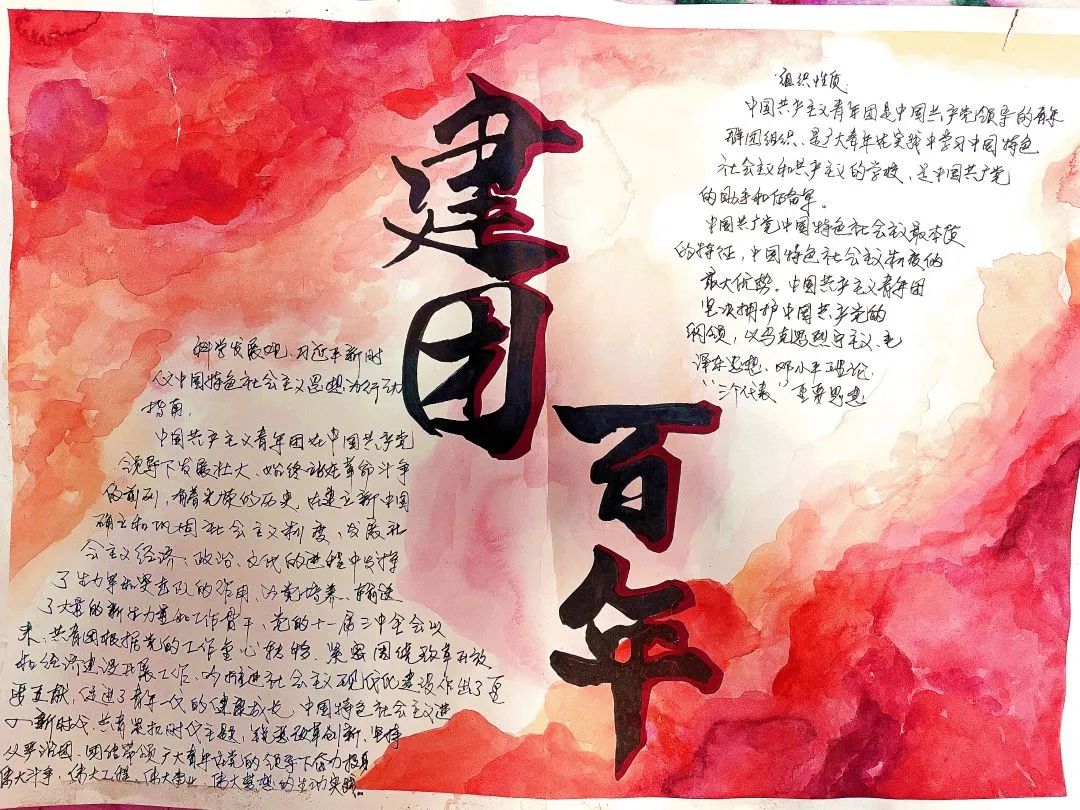 建团
百年
组织性质
中国共产主义青年团是中国共产党领导的青年
群团组织、是广大青年在实践中学习中国特色
社会主义和共产主义的学校、是中国共产党
的助手和后备军。
中国共产党中国特色社会主义最本质
的特征，中国特色社会主义制度的
最大优势。中国共产主义青年团
坚决拥护中国共产党的
纲领，以马克思列宁主义、毛
泽东思想、邓小平理论
“三个代表”重要思想
科学发展观、习近平新时
代中国特色社会主义思想为行动
指南。
中国共产主义青年团在中国共产党
领导下发展壮大、始终站在革命斗争
的前列，有着光荣的历史，在建立新中国
确立和巩固社会主义制度、发展社
会主义经济、政治、文化的进程中发挥
了生力军和突击队的作用，为党培养、输送
了大量的新生力量和工作骨干，党的十一届三中全会以
来、共青团根据党的工作重心转移、紧密围绕改革开放
和经济建设开展工作、为推进社会主义现代化建设作出了重
要贡献，促进了青年一代的健康成长，中国特色社会主义进
入新时代、共青团紧扣时代主题，锐意改革创新、坚持
从严治团、团结带领广大青年在党的领导下奋力投身
伟大斗争、伟大工程、伟大事业、伟大梦想的生动实践。